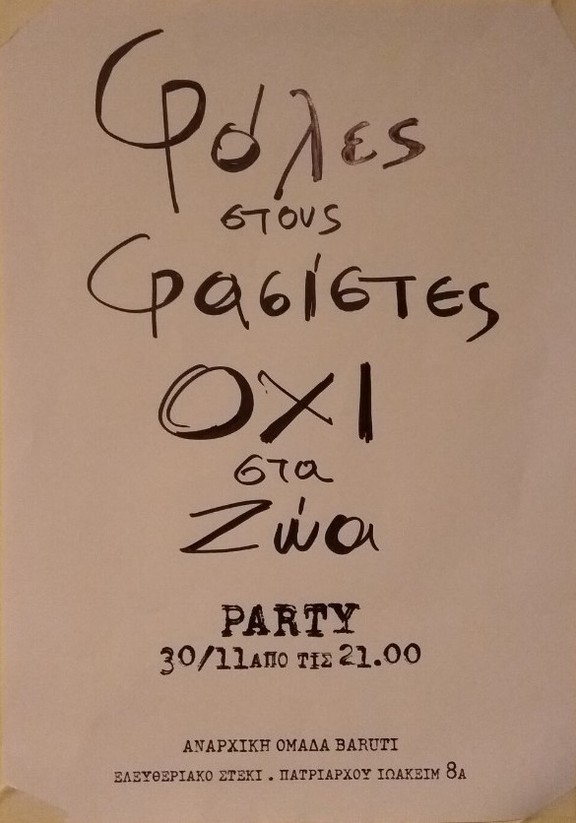 Φόλες
στους
Φασίστες
ΟΧΙ
στα
Ζώα
PARTY
30/11 ΑΠΟ ΤΙΣ 21.00
ΑΝΑΡΧΙΚΗ ΟΜΑΔΑ BARUTI
ΕΛΕΥΘΕΡΙΑΚΟ ΣΤΕΚΙ . ΠΑΤΡΙΑΡΧΟΥ ΙΩΑΚΕΙΜ 8Α